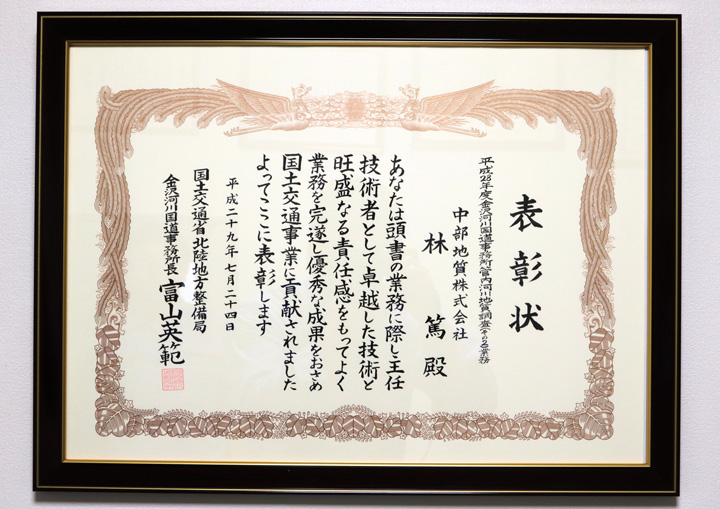 表彰状
平成28年度金沢河川国道事務所管内河川地質調査その2業務
中部地質株式会社
林 篤 殿
あなたは頭書の業務に際し主任
技術者として卓越した技術と
旺盛なる責任感をもってよく
業務を完遂し優秀な成果をおさめ
国土交通事業に貢献されました
よってここに表彰します
平成二十九年七月二十四日
国土交通省北陸地方整備局
金沢河川国道事務所長 富山英範